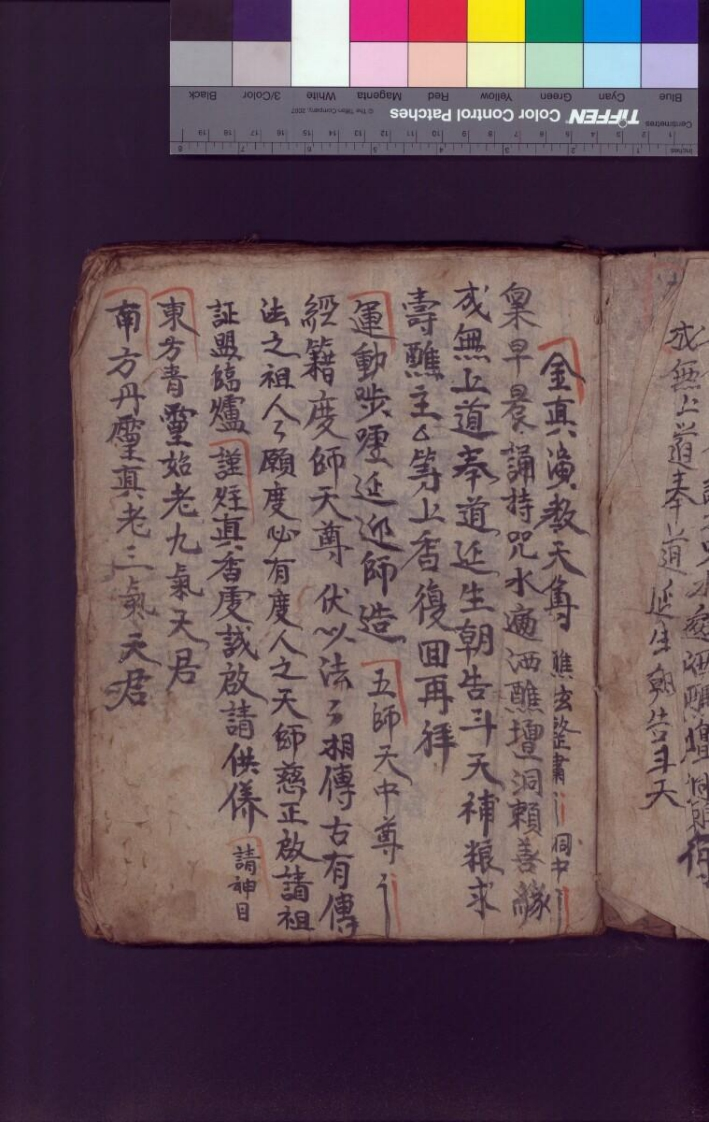 成無上道奉道延生朝告斗天
金真演教天尊 醮玄整肅 洞中
杲早晨誦持咒水遍洒醮壇洞賴善緣
成無上道奉道延生朝告斗天補粮求
壽醮主厶等上香復回再拜
運動步 延迎師造 五師天中尊
經籍度師天尊 伏以法〻相傳古有傳
法之祖人〻願度必有度人之天師慈正啟請祖
証盟臨爐 謹炷真香虔誠啟請 供俻 請神目
東方青靈始老九氣天君
南方丹靈真老三氣天君
TIFFEN Color Control Patches
© The Tiffen Company, 2007
Centimetres
Inches
Blue Cyan Green Yellow Red Magenta White 3/Color Black
1 2 3 4 5 6 7 8 9 10 11 12 13 14 15 16 17 18 19
1 2 3 4 5 6 7 8